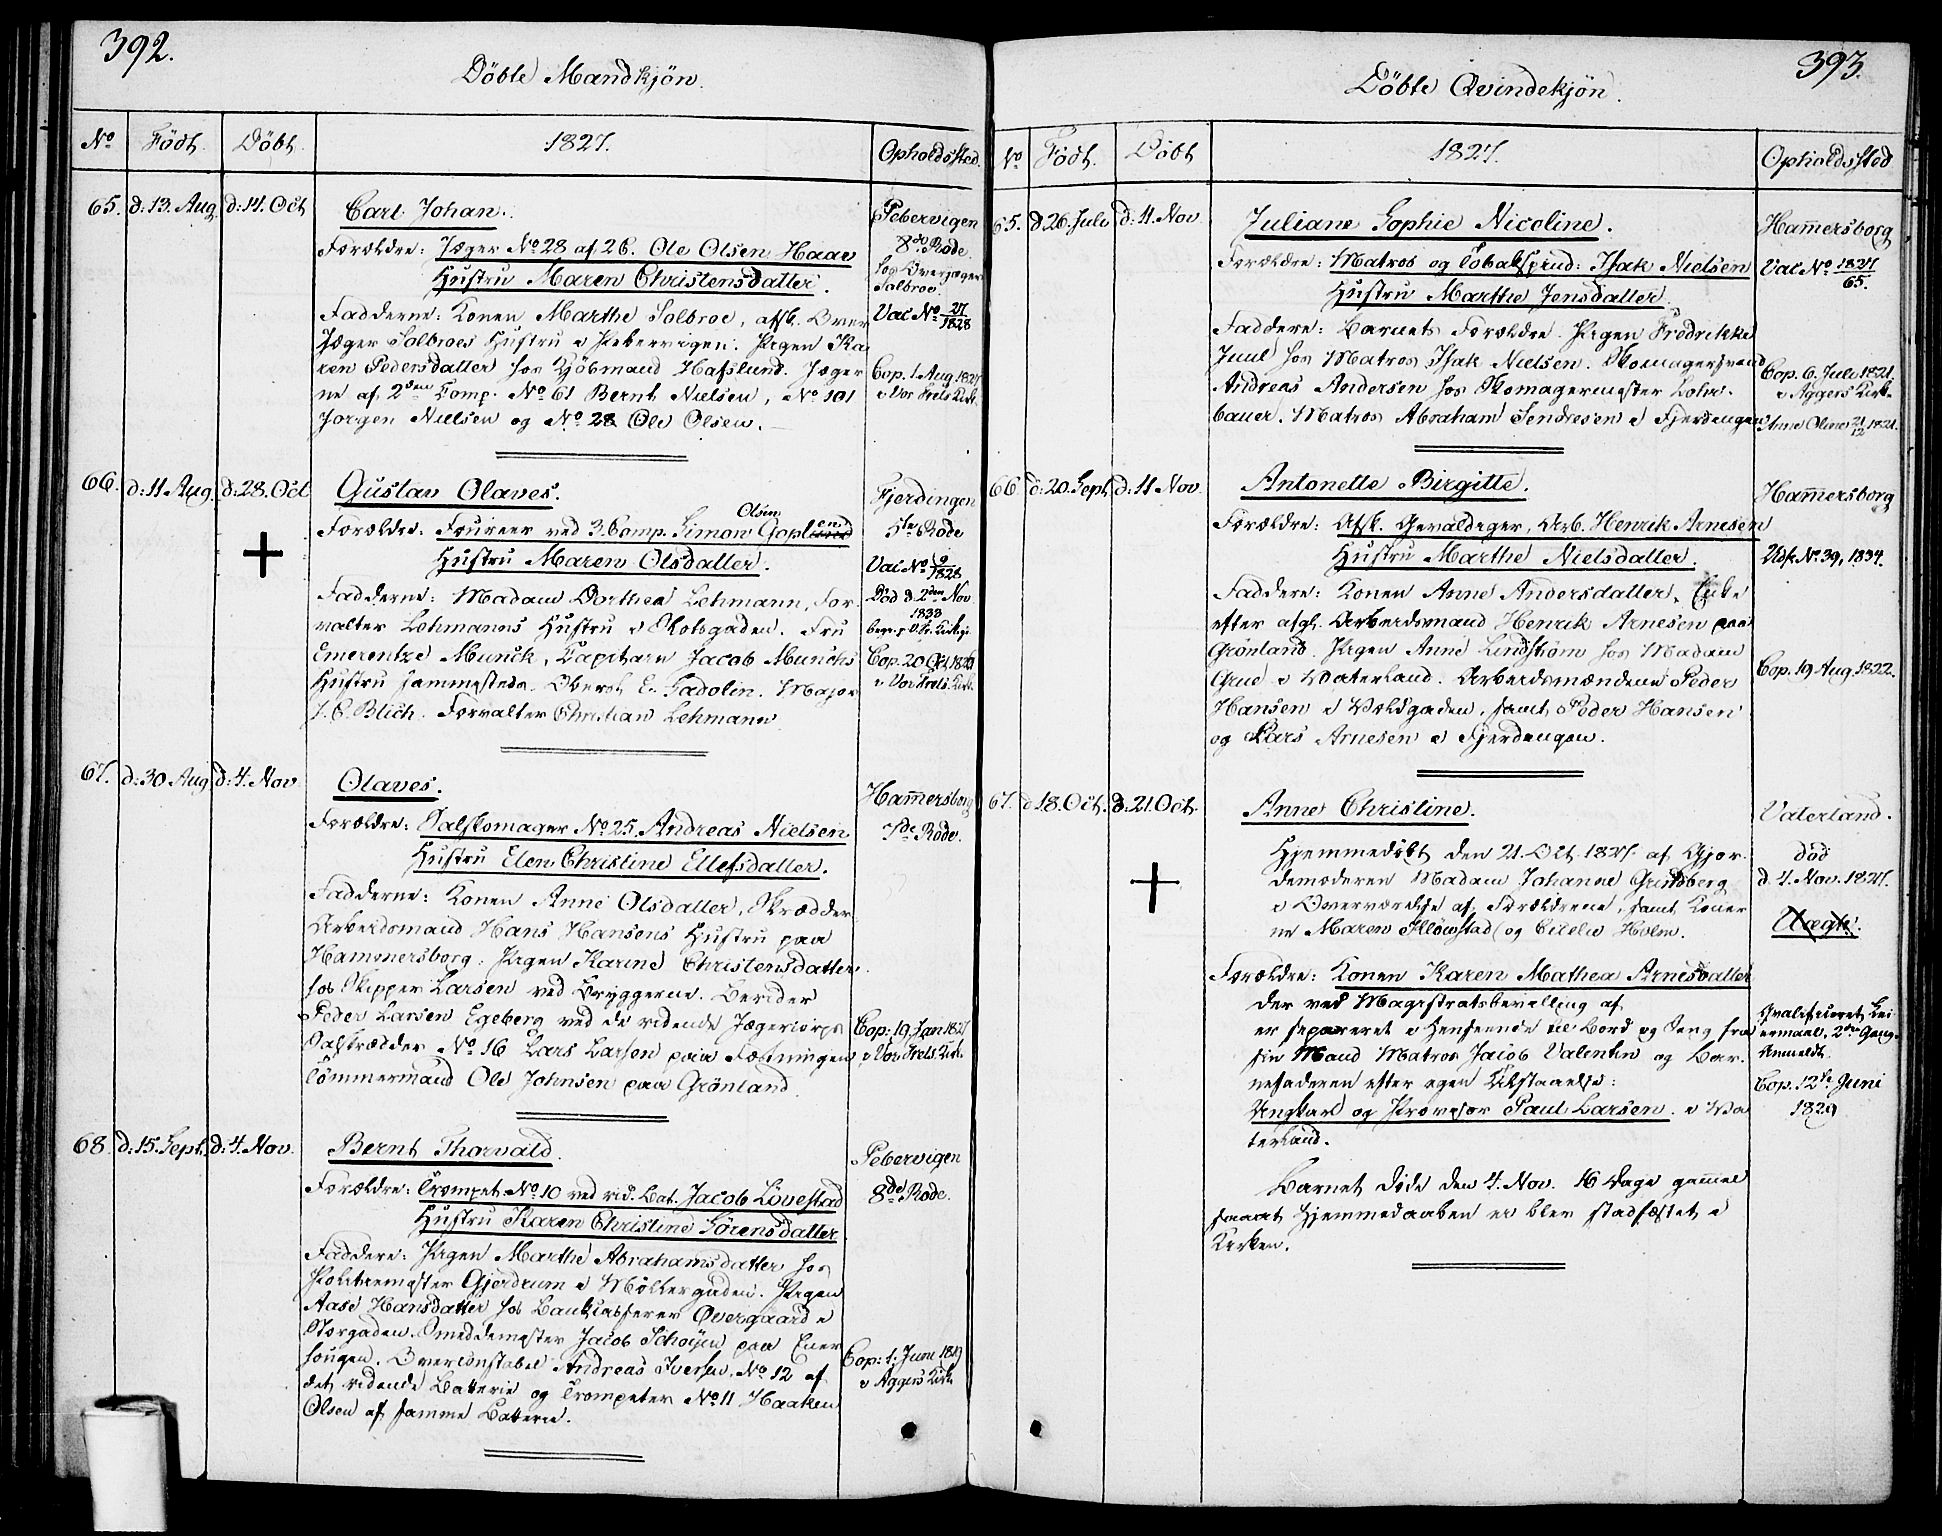 392.
Döbte Mandkjön.
No Födt. Döbt. 1827. Opholdssted.
65. d: 13. Aug. d: 14. Oct
Carl Johan.
Forældre: Jæger No 28 af 26. Ole Olsen Haae
Hustru Maren Christensdatter.
Fadderne: Konen Marthe Solbroe, afsk. Over
Jæger Solbroes Hustru i Pebervigen. Pigen Ka
ren Pedersdatter hos Kjöbmand Hafslund. Jæger
ne af 2den Comp. No 61 Bernt Nielsen, No 101
Jorgen Nielsen og No 28 Ole Olsen.
Pebervigen
8de Rode
hos Overjæger
Solbroe
Vac No 27/1828
Cop. 1. Aug. 1827
i Vor Frels. Kirke
66. d: 11 Aug. d: 28. Oct
Gustav Olaves.
Olsen
Forældre: Foureer ved 3. Comp. Simon Gaplund
Hustru Maren Olsdatter.
Fadderne: Madam Dorthea Lehmann, For-
valter Lehmanns Hustru i Skolegaden. Fru
Emerentze Munck, Capitain Jacob Munchs
Hustru sammesteds. Oberst E. Gadolin. Major
I. C. Blich. Forvalter Christian Lehmann
Fjerdingen
5te Rode
Vac No 9/1828
Död d. 2den Nov.
1833
Cop. 20 Oct.
i Vor Frels. Kirke
67. d: 30 Aug. d: 4. Nov
Olaves.
Forældre: Salskomager No 25. Andreas Nielsen
Hustru Elen Christine Ellefsdatter.
Fadderne: Konen Anne Olsdatter, Skrædder
Arbeidsmand Hans Hansens Hustru paa
Hammersborg. Pigen Karine Christensdatter
hos Skipper Larsen ved Bryggerne. Berider
Peder Larsen Egeberg ved de ridende Jægercorps
Salskrædder No 16 Lars Larsen paa Fæstningen
Tömmermand Ole Johnsen paa Grönland.
Hammersborg
7de Rode.
Cop: 19. Jan 1827
i Vor Frels. Kirke
68. d: 15. Sept. d: 4. Nov.
Bernt Thorvald.
Forældre: Trompet. No 10 ved rid. Bat. Jacob Lövestad
Hustru Karen Christine Sörensdatter.
Faddere: Pigen Marthe Abrahamsdatter hos
Politiemester Gjerdrum i Möllergaden. Pigen
Aase Hansdatter hos Bankcasserer Overgaard i
Storgaden. Smeddemester Jacob Schöyen paa Ener
hougen. Overconstabel Andreas Iversen, No 12 af
det ridende Batterie og Trompeter No 11 Haaken
Olsen af samme Batterie.
Pebervigen
8de Rode.
Cop: 1. Juni 1819
i Aggers Kirke
393.
Döbte Qvindekjön.
No Födt. Döbt 1827. Opholdssted
65. d. 26. Juli d: 11. Nov
Juliane Sophie Nicoline.
Forældre: Matros og Tobakspind: Isak Nielsen
Hustru Marthe Jensdatter.
Faddere: Barnets Forældre. Pigen Fredrikke
Juul hos Matros Isak Nielsen. Skomagersvend
Andreas Andersen hos Skomagermester Lohr-
bauer. Matros Abraham Sendresen i Fjerdingen
Hammersborg
Vac No 1827/65.
Cop. 6. Juli 1821.
i Aggers Kirke
Anne Oline 21/12 1821.
66 d: 20. Sept. d: 11 Nov.
Antonette Birgitte.
Forældre: Afsk. Gevaldiger, Arb. Henrik Arnesen
Hustru Marthe Nielsdatter.
Faddere: Konen Anne Andersdatter, Enke
efter afgl. Arbeidsmand Henrik Arnesen paa
Grönland. Pigen Anne Lindström hos Madam
Grue i Waterland. Arbeidsmændene Peder
Hansen i Voldgaden, samt Peder Hansen
og Lars Arnesen i Fjerdingen.
Hammersborg
Udsk No. 39, 1834.
Cop. 19 Aug. 1822.
67. d. 18. Oct. d. 21. Oct.
Anne Christine.
Hjemmedöbt den 21. Oct. 1827. af Gjor-
demoderen Madam Johanne Grindberg
i Overværelse af Forældrene, samt Koner
ne Maren Illöwstad og Cicelie Holm.
Forældre: Konen Karen Mathea Arnesdatter
der ved Magistratsbevilling af
er separeret i Henseende til Bord og Seng fra
sin Mand Matros Jacob Valentin og Bar-
nefaderen efter egen Tilstaaelse:
Ungkarl og Provisor Paul Larsen. i Va
terland.
Barnet döde den 4. Nov. 16 Dage gammel
saaat Hjemmedaaben ei blev stadfæstet i
Kirken.
Vaterland.
död
d. 4. Nov. 1827.
Uægte.
Qvalificeret Lei
ermaal, 2den Gang
Anmeldt.
Cop. 12te Juni
1829